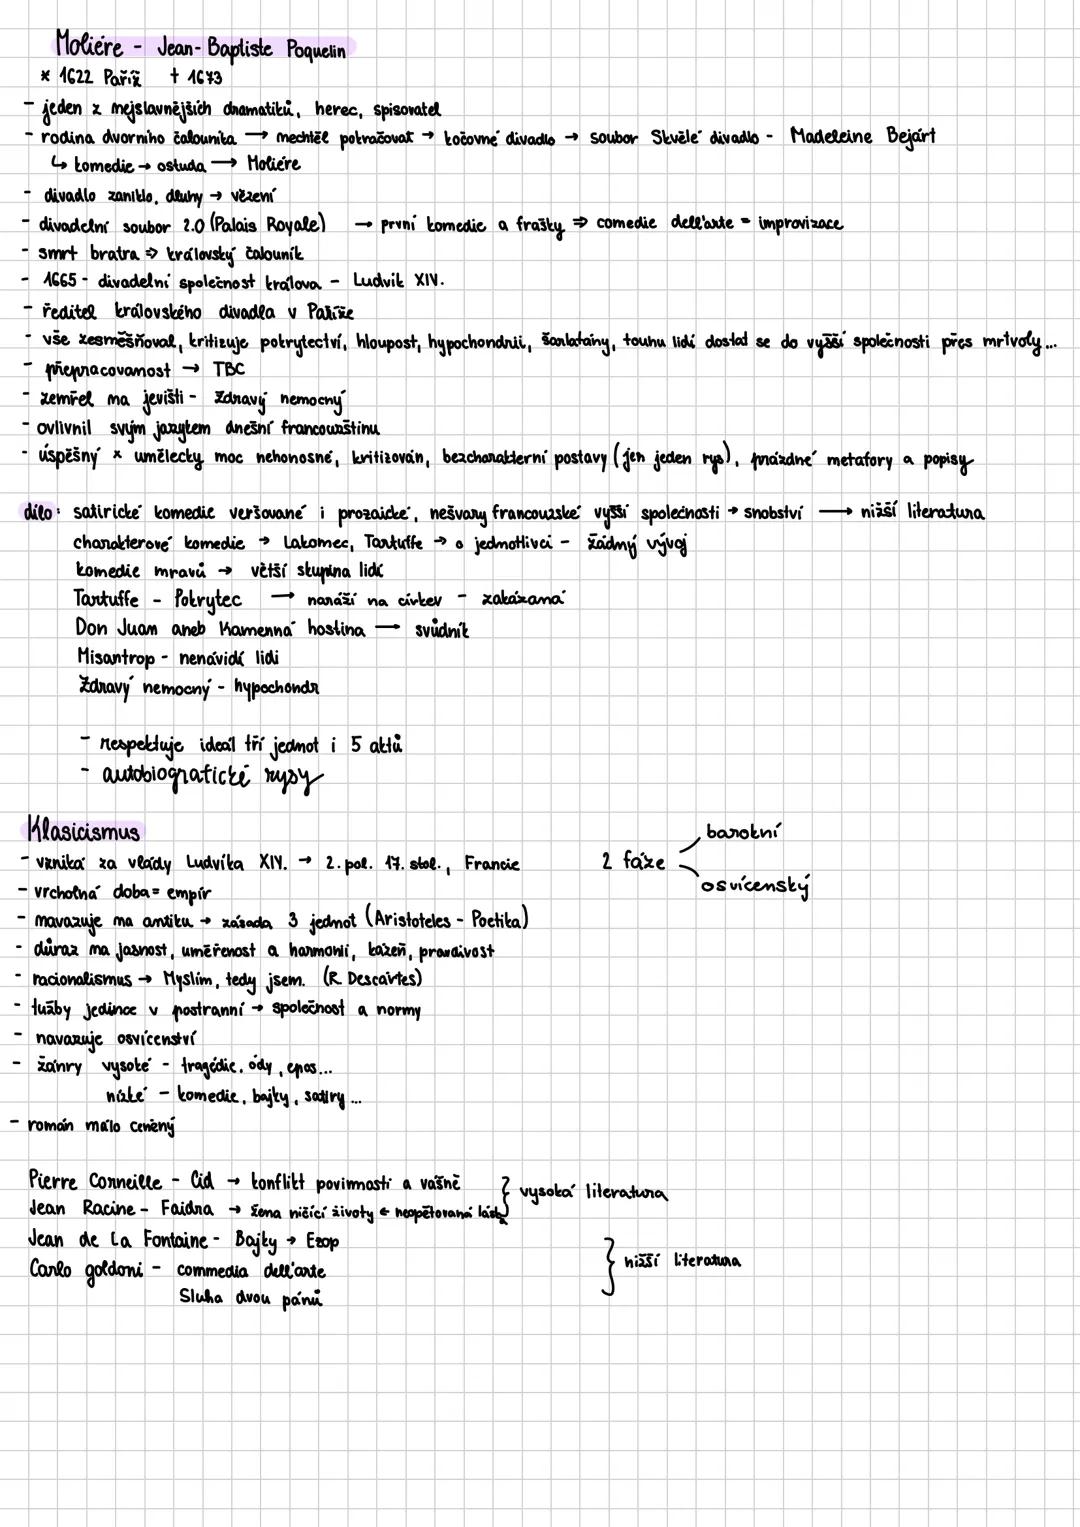 Moliére - Jean-Baptiste Poquelin
* 1622 Paříž † 1673
- jeden z nejslavnějších dramatiků, herec, spisovatel
- rodina dvorního čalouníka → nechtěl pokračovat → kočovné divadlo → soubor Skvělé divadlo - Madeleine Bejárt
↳ komedie → ostuda → Moliére
- divadlo zaniklo, dluhy → vězení
- divadelní soubor 2.0 (Palais Royale) → první komedie a frašky ⇒ comedie dell'arte = improvizace
- smrt bratra ⇒ královský čalouník
- 1665 - divadelní společnost králova - Ludvik XIV.
- ředitel královského divadla v Paříže
- vše zesměšňoval, kritizuje pokrytectví, hloupost, hypochondrii, šarlatány, touhu lidí dostat se do vyšší společnosti přes mrtvoly...
- přepracovanost → TBC
- zemřel na jevišti - Zdravý nemocný
- ovlivnil svým jazykem dnešní francouštinu
- úspěšný × umělecky moc nehonosné, kritizován, bezcharakterní postavy (jen jeden rys), prázdné metafory a popisy
dílo: satirické komedie veršované i prozaické, nešvary francouzské vyšší společnosti → snobství → nižší literatura
charakterové komedie → Lakomec, Tartuffe → o jednotlivci - žádný vývoj
komedie mravů → větší skupina lidí
Tartuffe - Pokrytec → naráží na církev - zakázaná
Don Juan aneb Kamenná hostina → svůdník
Misantrop - nenávidí lidi
Zdravý nemocný - hypochondr
- respektuje ideál tří jednot i 5 aktů
- autobiografické rysy
Klasicismus
- vzniká za vlády Ludvíka XIV. → 2. pol. 17. stol., Francie
2 fáze
barokní
osvícenský
- vrcholná doba = empír
- navazuje na antiku → zásada 3 jednot (Aristoteles - Poetika)
- důraz na jasnost, uměřenost a harmonii, kázeň, pravdivost
- racionalismus → Myslím, tedy jsem. (R. Descártes)
- tužby jedince v postranní → společnost a normy
- navazuje osvícenství
- žánry vysoké - tragédie, ódy, epos...
nízké - komedie, bajky, satiry...
- román málo ceněný
Pierre Corneille - Cid → konflikt povinnosti a vášně
Jean Racine - Faidra → žena ničící životy ← neopětovaná láska
} vysoká literatura
Jean de La Fontaine - Bajky → Ezop
Carlo goldoni - commedia dell'arte
Sluha dvou pánů
} nižší literatura